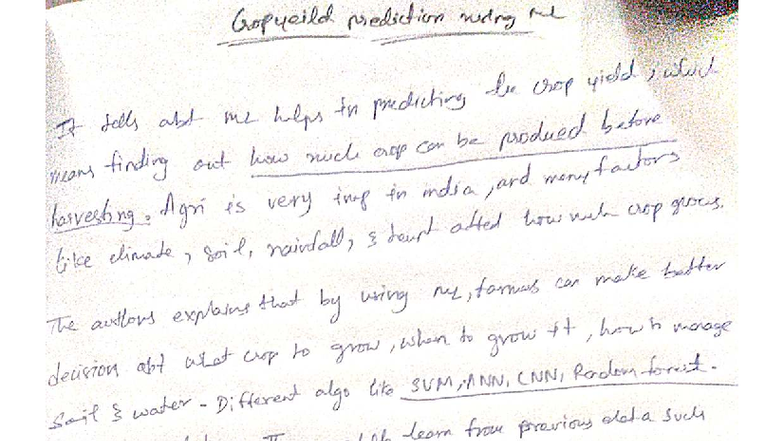 Crop yeild prediction using ML
It tells abt ML helps in predicting the crop yield, which
means finding out how much crop can be produced before
harvesting. Agri is very imp in india, and many factors
like climate, soil, rainfall, & tempt affed how much crop grows.
The authors explains that by using ML, farmers can make better
decision abt what crop to grow, when to grow it, how to manage
Soil & water - Different algo like SVM, ANN, CNN, Random forest.
learn from previous data such